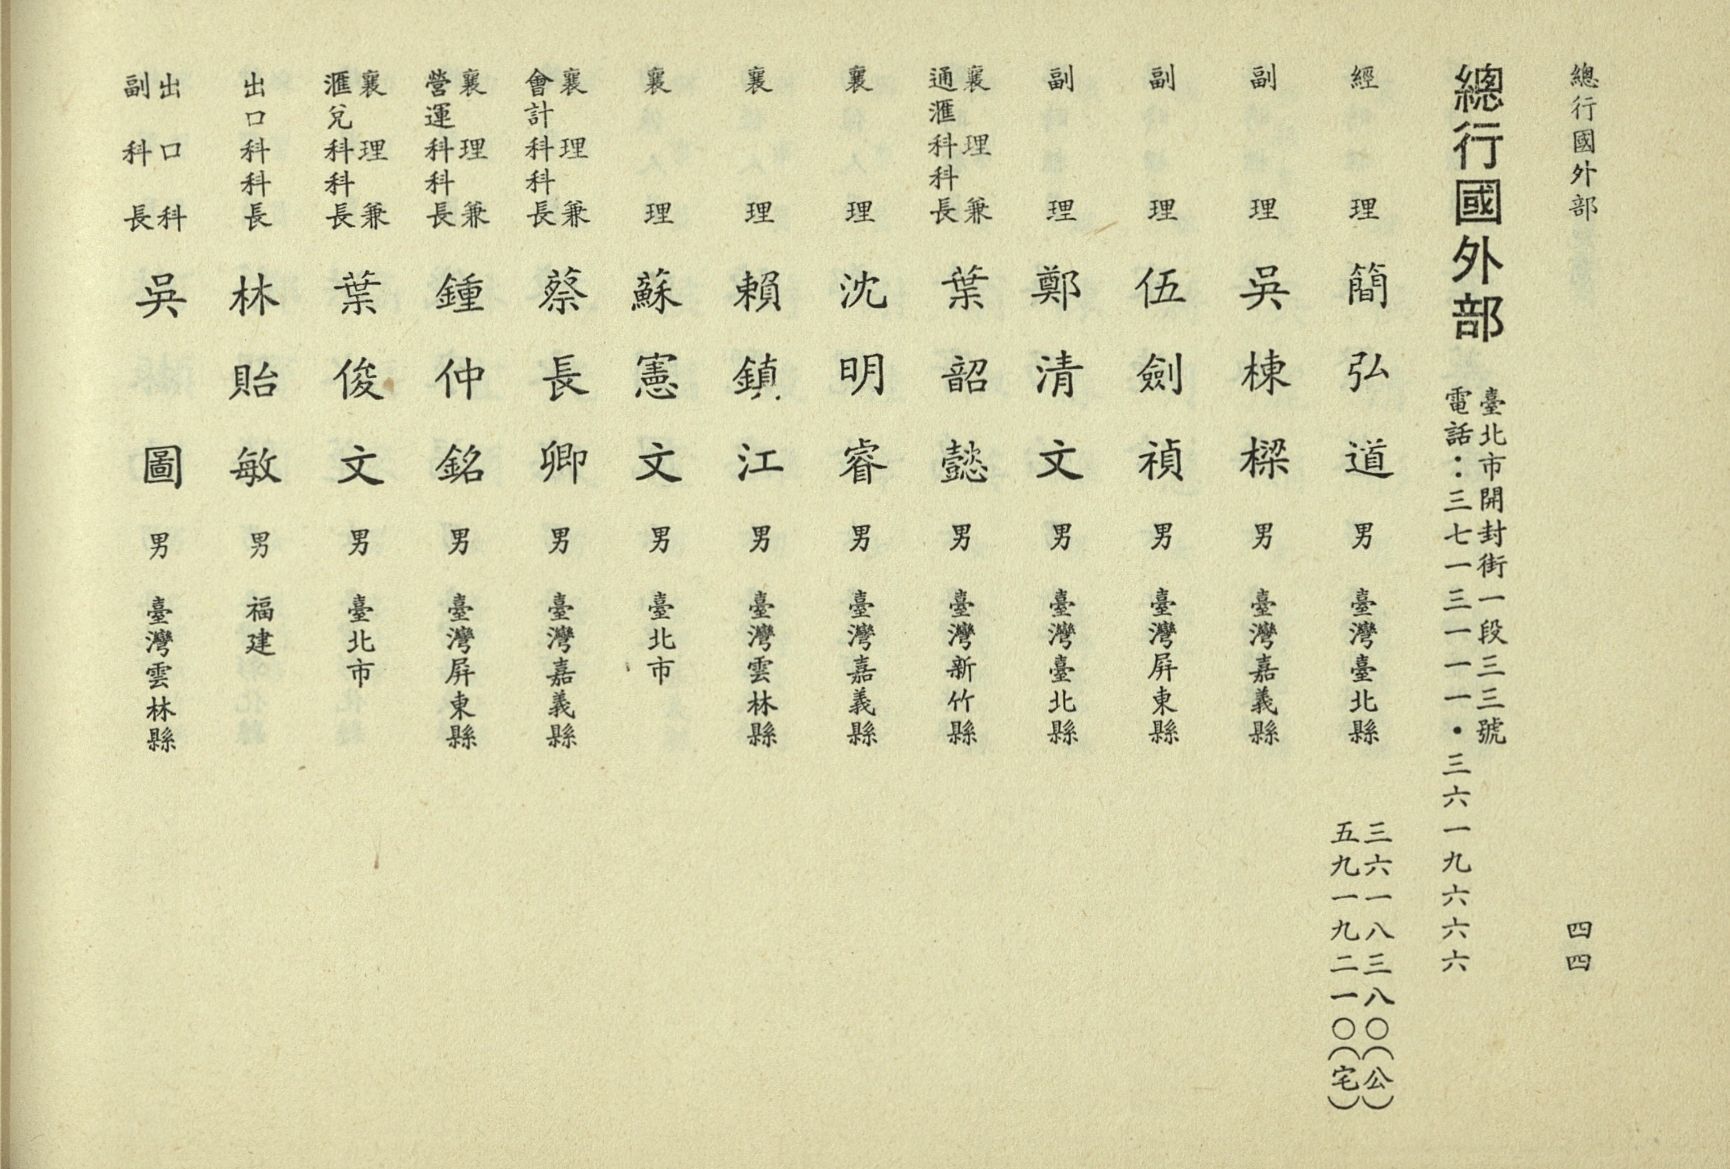 總行國外部
四四
總行國外部
臺北市開封街一段三三號
電話：三七一三一一一・三六一九六六六
經理 簡弘道 男 臺灣臺北縣 三六一八三八〇（公）
五九一九二一〇（宅）
副理 吳棟樑 男 臺灣嘉義縣
副理 伍劍禎 男 臺灣屏東縣
副理 鄭清文 男 臺灣臺北縣
襄理兼
通滙科科長 葉韶懿 男 臺灣新竹縣
襄理 沈明睿 男 臺灣嘉義縣
襄理 賴鎮江 男 臺灣雲林縣
襄理 蘇憲文 男 臺北市
襄理兼
會計科科長 蔡長卿 男 臺灣嘉義縣
襄理兼
營運科科長 鍾仲銘 男 臺灣屏東縣
襄理兼
滙兌科科長 葉俊文 男 臺北市
出口科科長 林貽敏 男 福建
出口科
副科長 吳圖 男 臺灣雲林縣